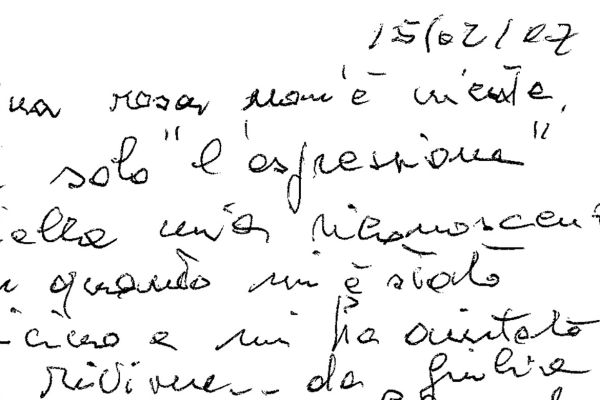 15/02/07
una rosa non è niente,
è solo "l'espressione"
della mia riconoscen
quanto mi è stato
vicino e mi ha aiutato
Rivivere... da Giulia